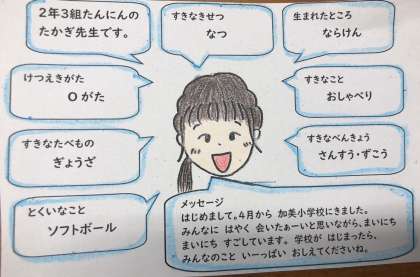 2年3組たんにんの
たかぎ先生です。
すきなきせつ
なつ
生まれたところ
ならけん
けつえきがた
Oがた
すきなこと
おしゃべり
すきなたべもの
ぎょうざ
すきなべんきょう
さんすう・ずこう
とくいなこと
ソフトボール
メッセージ
はじめまして。4月から 加美小学校にきました。
みんなに はやく 会いたぁーいと思いながら、まいにち
まいにち すごしています。学校が はじまったら、
みんなのこと いーっぱい おしえてくださいね。